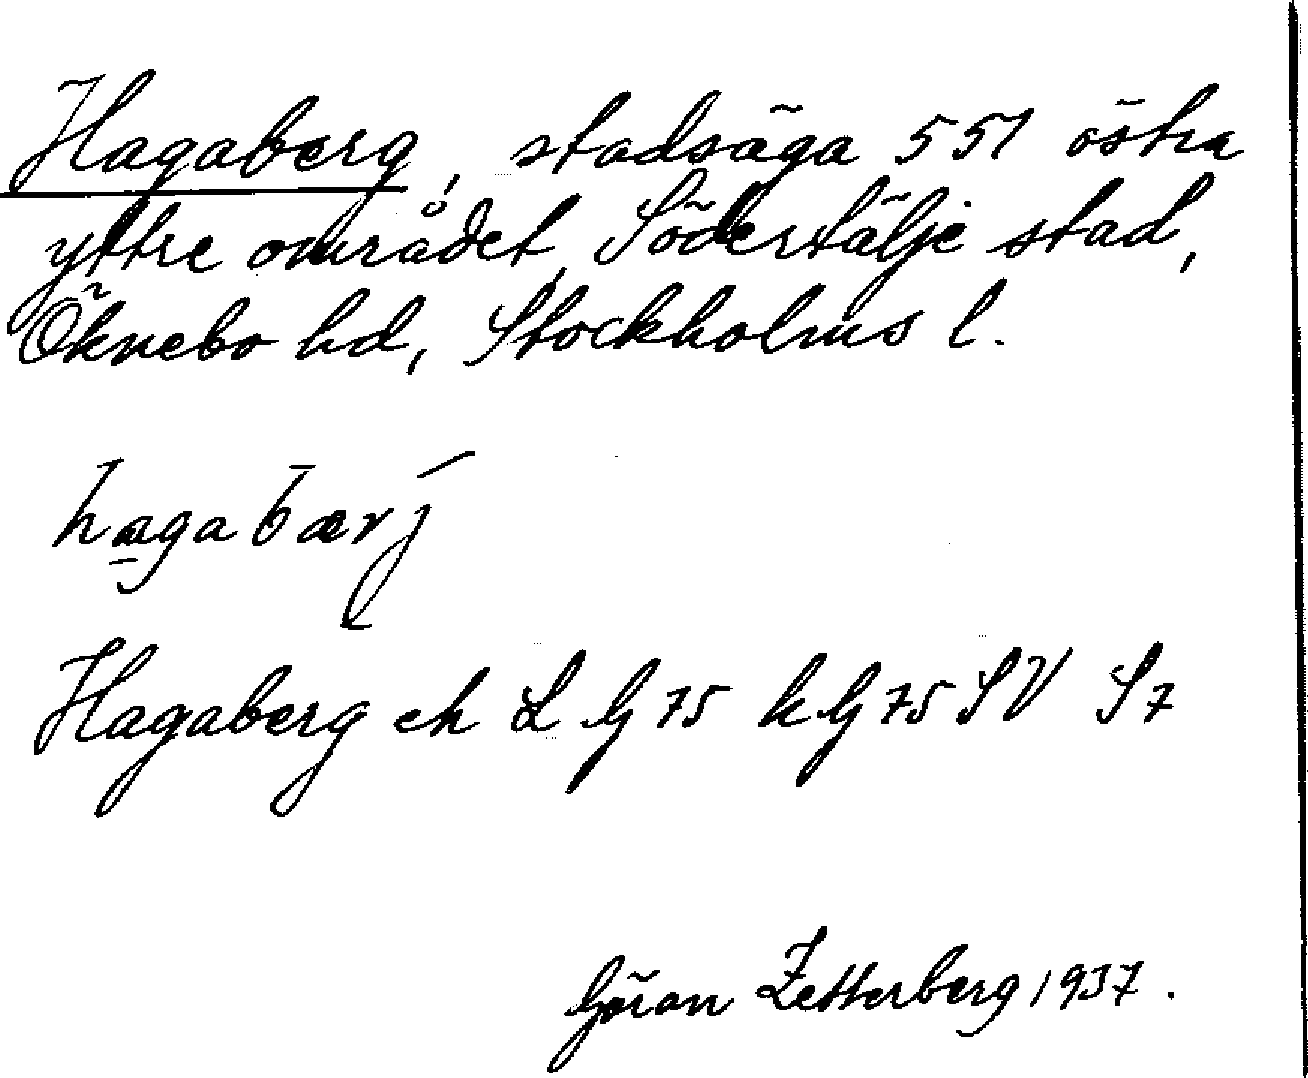 Hagaberg, stadsäga 551 östra
yttre området, Södertälje stad,
Öknebo hd, Stockholms l.
hagabærj
Hagaberg ek L G 75 k G 75 SV S 7
Göran Zetterberg 1937.